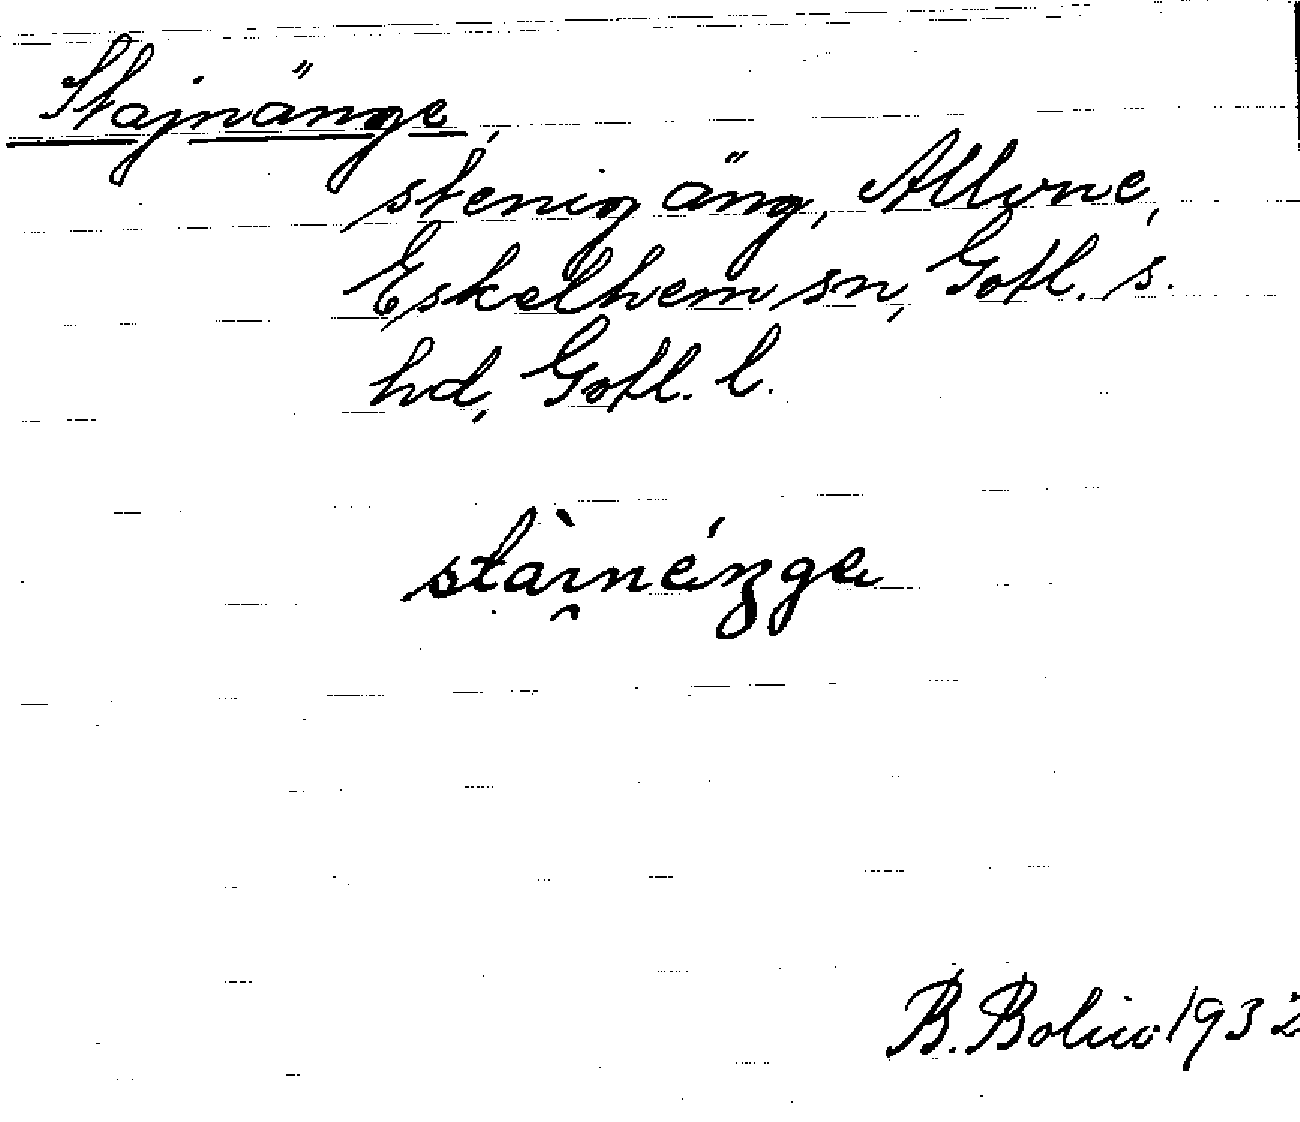 Stajnänge,
stenig äng, Allvne,
Eskelhem sn, Gotl. s.
hd, Gotl. l.
stàɪ̯néŋge
B. Bolin 1932